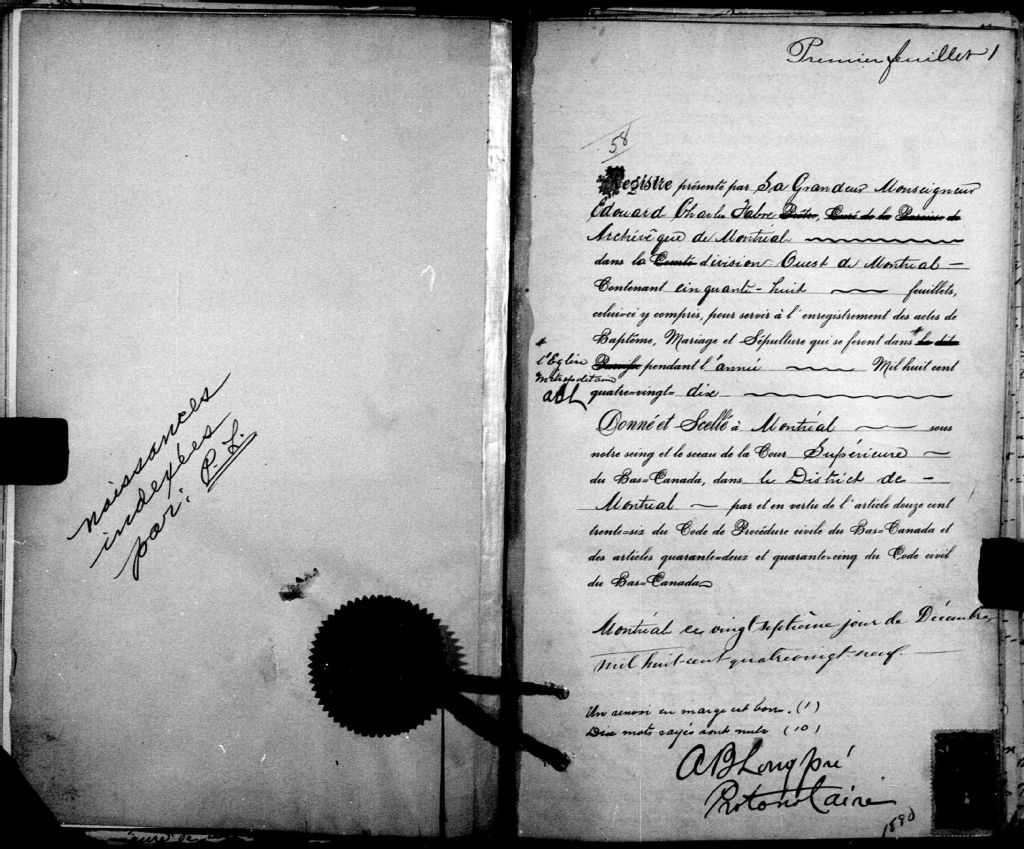 naissances
indexées
par: P. L.
Premier feuillet 1
58
Registre présenté par Sa Grandeur Monseigneur
Edouard Charles Fabre Prêtre, Curé de la Paroisse de
Archévêque de Montréal
dans la Comté division Ouest de Montréal
Contenant cinquante-huit feuillets,
celui-ci y compris, pour servir à l'enregistrement des actes de
Baptême, Mariage et Sépulture qui se feront dans * la dite
* l'Eglise
Métropolitaine
ABL
Paroisse pendant l'année Mil huit cent
quatre-vingt- dix
Donné et Scellé à Montréal sous
notre seing et le sceau de la Cour Supérieure
du Bas-Canada, dans le District de
Montréal par et en vertu de l'article douze cent
trente-six du Code de Procédure civile du Bas-Canada et
des articles quarante-deux et quarante-cinq du Code civil
du Bas-Canada
Montréal ce vingt septième jour de Décembre,
mil huit-cent quatrevingt-neuf.
Un renvoi en marge est bon. (1)
Dix mots rayés sont nuls (10)
A B Longpré
Protonotaire
1890